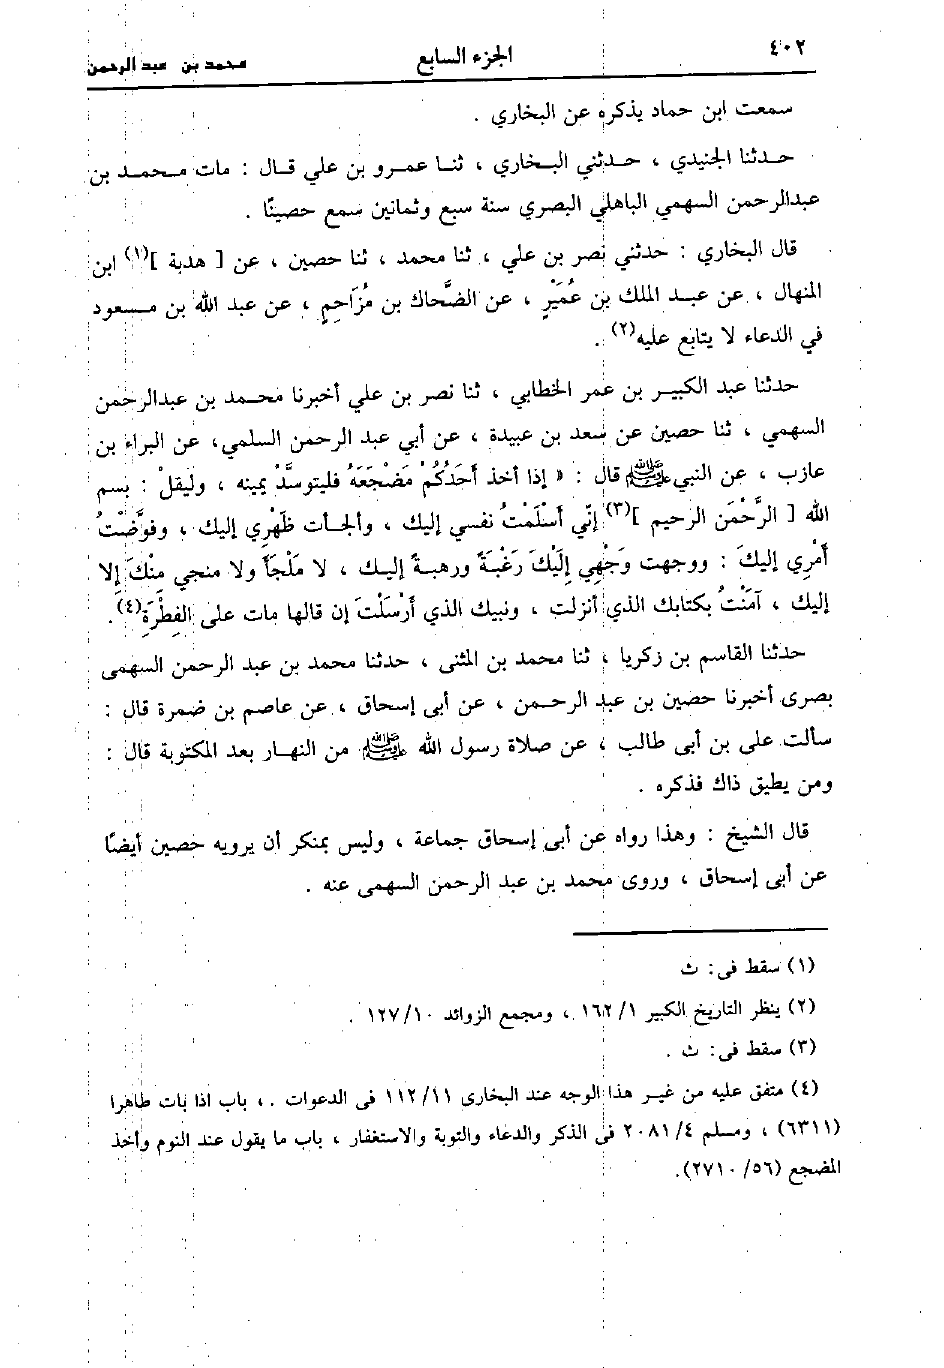 ٤٠٢
الجزء السابع
محمد بن عبد الرحمن
سمعت ابن حماد يذكره عن البخاري .
حـدثنا الجنيدي ، حـدثني البـخاري ، ثنـا عمـرو بن علي قـال : مات مـحمـد بن
عبدالرحمن السهمي الباهلي البصري سنة سبع وثمانين سمع حصينًا .
قال البخاري : حدثني نصر بن علي ، ثنا محمد ، ثنا حصين ، عن [ هدبة ](١) ابن
المنهال ، عن عبـد الملك بن عُمَيْرٍ ، عن الضَّحاك بن مُزَاحِمٍ ، عن عبد الله بن مـسعود
في الدعاء لا يتابع عليه(٢) .
حدثنا عبد الكبيـر بن عمر الخطابي ، ثنا نصر بن علي أخبرنا محمـد بن عبدالرحمن
السهمي ، ثنا حصين عن سعد بن عبيدة ، عن أبي عبد الرحمن السلمي، عن البراء بن
عازب ، عن النبي ﷺ قال : « إذا أخذ أَحَدُكُمْ مَضْجَعَهُ فليتوسَّدْ يمينه ، وليقلْ : بسم
الله [ الرَّحْمَن الرحيم ](٣) إنِّي أَسْلَمْتُ نفسي إليك ، وألجـأت ظَهْرِي إليك ، وفوَّضْتُ
أَمْرِي إليكَ : ووجهت وَجْهِي إِلَيْكَ رَغْبَةً ورهبـةً إليـك ، لا مَلْجَأَ ولا منجي مِنْكَ إلا
إليك ، آمَنْتُ بكتابك الذي أنزلت ، ونبيك الذي أَرْسَلْتَ إن قالها مات على الفِطْرَةِ(٤).
حدثنا القاسم بن زكريا ، ثنا محمد بن المثنى ، حدثنا محمد بن عبد الرحمن السهمى
بصرى أخبرنا حصين بن عبد الرحـمن ، عن أبى إسحاق ، عن عاصم بن ضمرة قال :
سألت على بن أبى طالب ، عن صلاة رسول الله ﷺ من النهار بعد المكتوبة قال :
ومن يطيق ذاك فذكره .
قال الشيخ : وهذا رواه عن أبى إسحاق جماعة ، وليس بمنكر أن يرويه حصين أيضًا
عن أبى إسحاق ، وروى محمد بن عبد الرحمن السهمى عنه .
(١) سقط فى: ث
(٢) ينظر التاريخ الكبير ١/ ١٦٢ ، ومجمع الزوائد ١٠/ ١٢٧ .
(٣) سقط فى: ث .
(٤) متفق عليه من غيـر هذا الوجه عند البخارى ١١/ ١١٢ فى الدعوات . ، باب اذا بات طاهرا
(٦٣١١) ، ومسلم ٤/ ٢٠٨١ فى الذكر والدعاء والتوبة والاستغفار ، باب ما يقول عند النوم وأخذ
المضجع (٥٦/ ٢٧١٠).